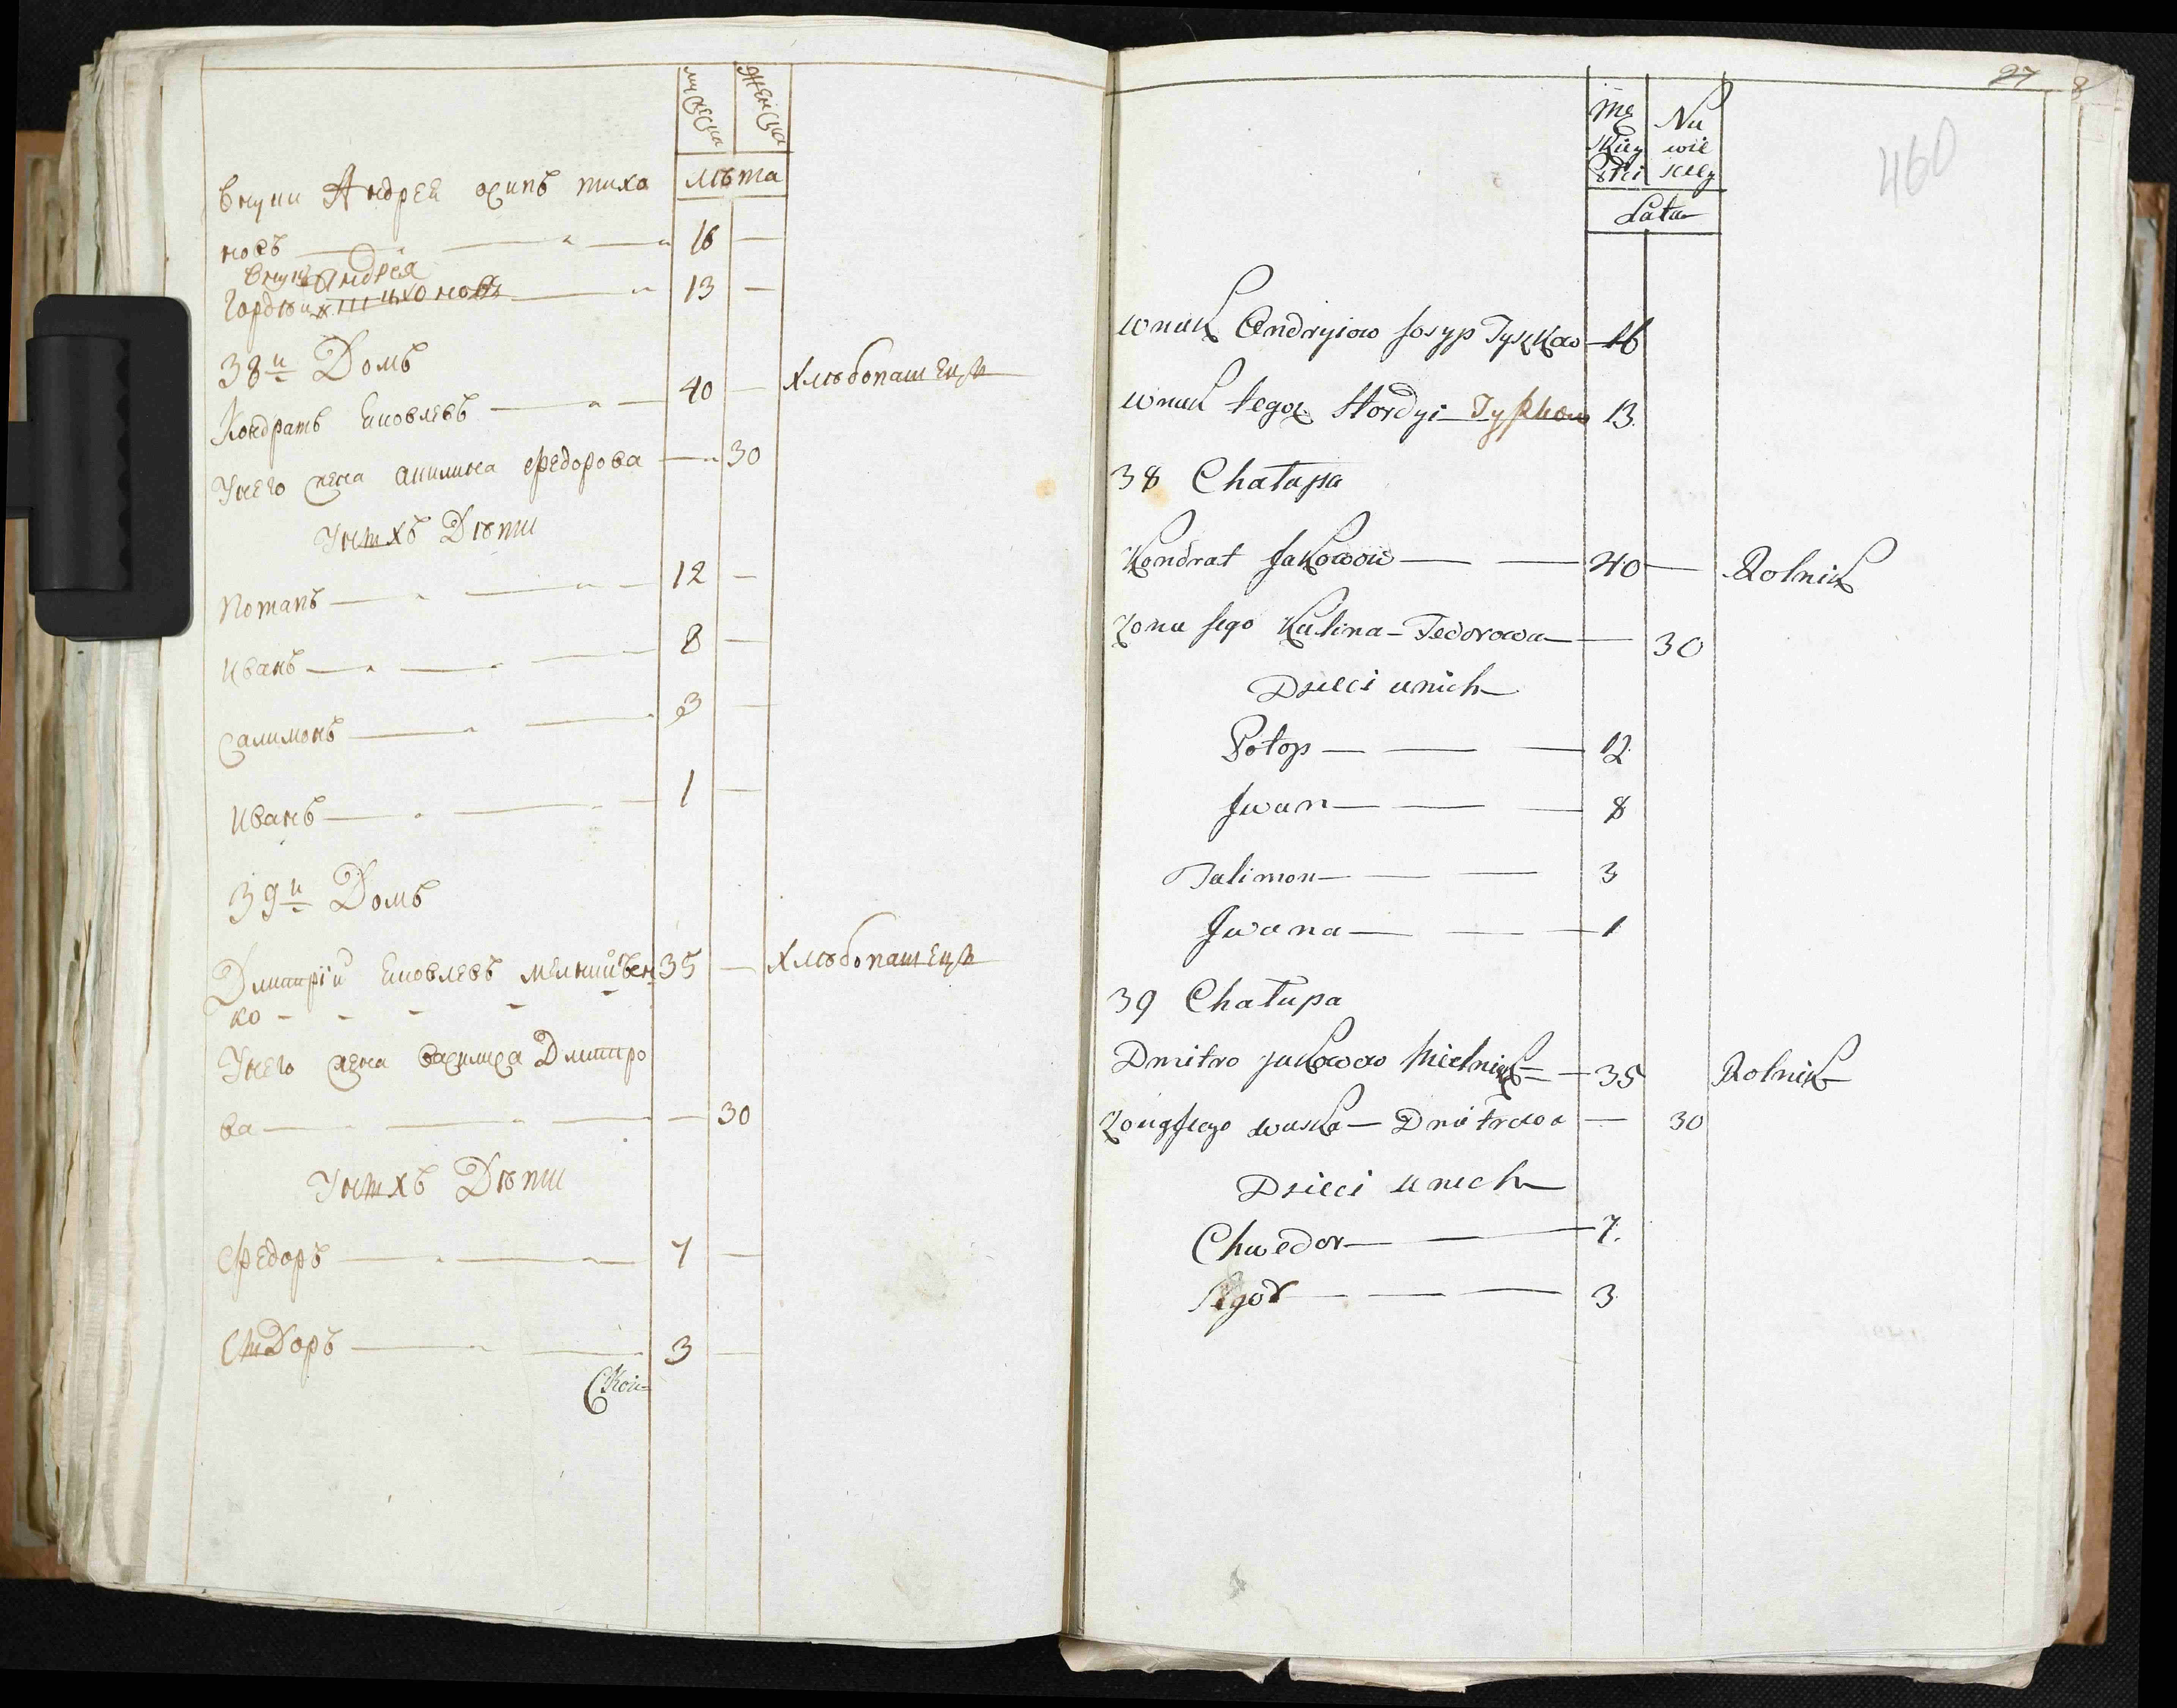 мужеска женска
лѣта
внуки Андреи осипъ тихо
новъ — 16 —
внукъ Андрея
Гордѣи тихоновъ — 13 —
38и Домъ
Кондратъ Яковлевъ — 40 — хлѣбопашецъ
Унего жена акилина Федорова — 30
Унихъ Дѣти
Потапъ — 12 —
Иванъ — 8 —
Салимонъ — 3 —
Иванъ — 1 —
39и Домъ
Дмитрій Яковлевъ мелничен 35 — хлѣбопашецъ
ко - - - -
Унего жена василиса Дмитро
ва — 30
Унихъ Дѣти
Федоръ — 7 —
Сидоръ — 3 —
27 8
460
Lata
wnuk Andryiow Josyp Tyszkow — 16
wnuk tegoż Hordyi Tyskow 13
38 Chałupa
Kondrat Jakowow — — 40 — Rolnik
Zona jego Kulina Fedorowa — 30
Dzieci unich
Potop — — — 12
Jwan — — — 8
Talimon — — — 3
Jwana — — — 1
39 Chałupa
Dmitro Jakowow Mielnik — 35 Rolnik
Zona jego waska — Dmitrowa — 30
Dzieci unich
Chwedor — — 7.
— — — 3